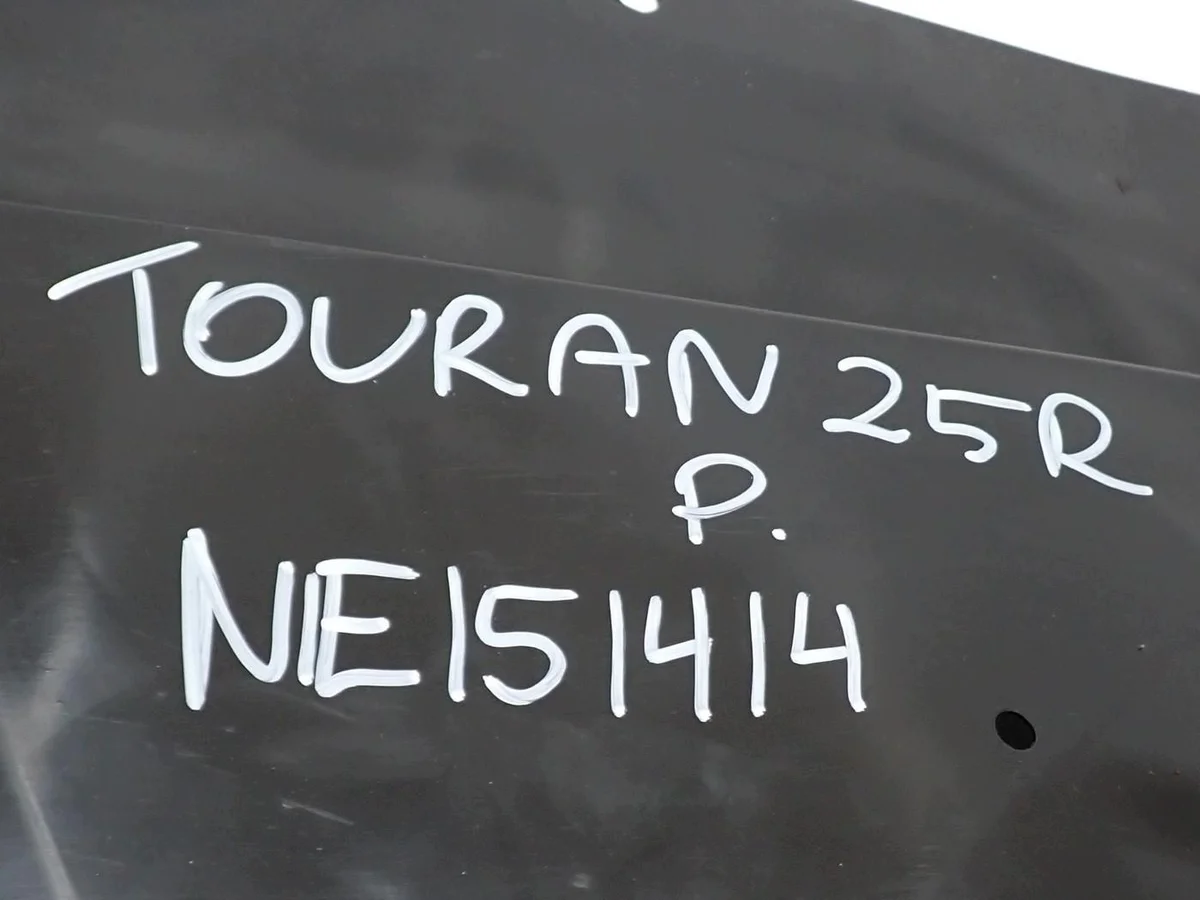 TOURAN 25R
P.
NE151414